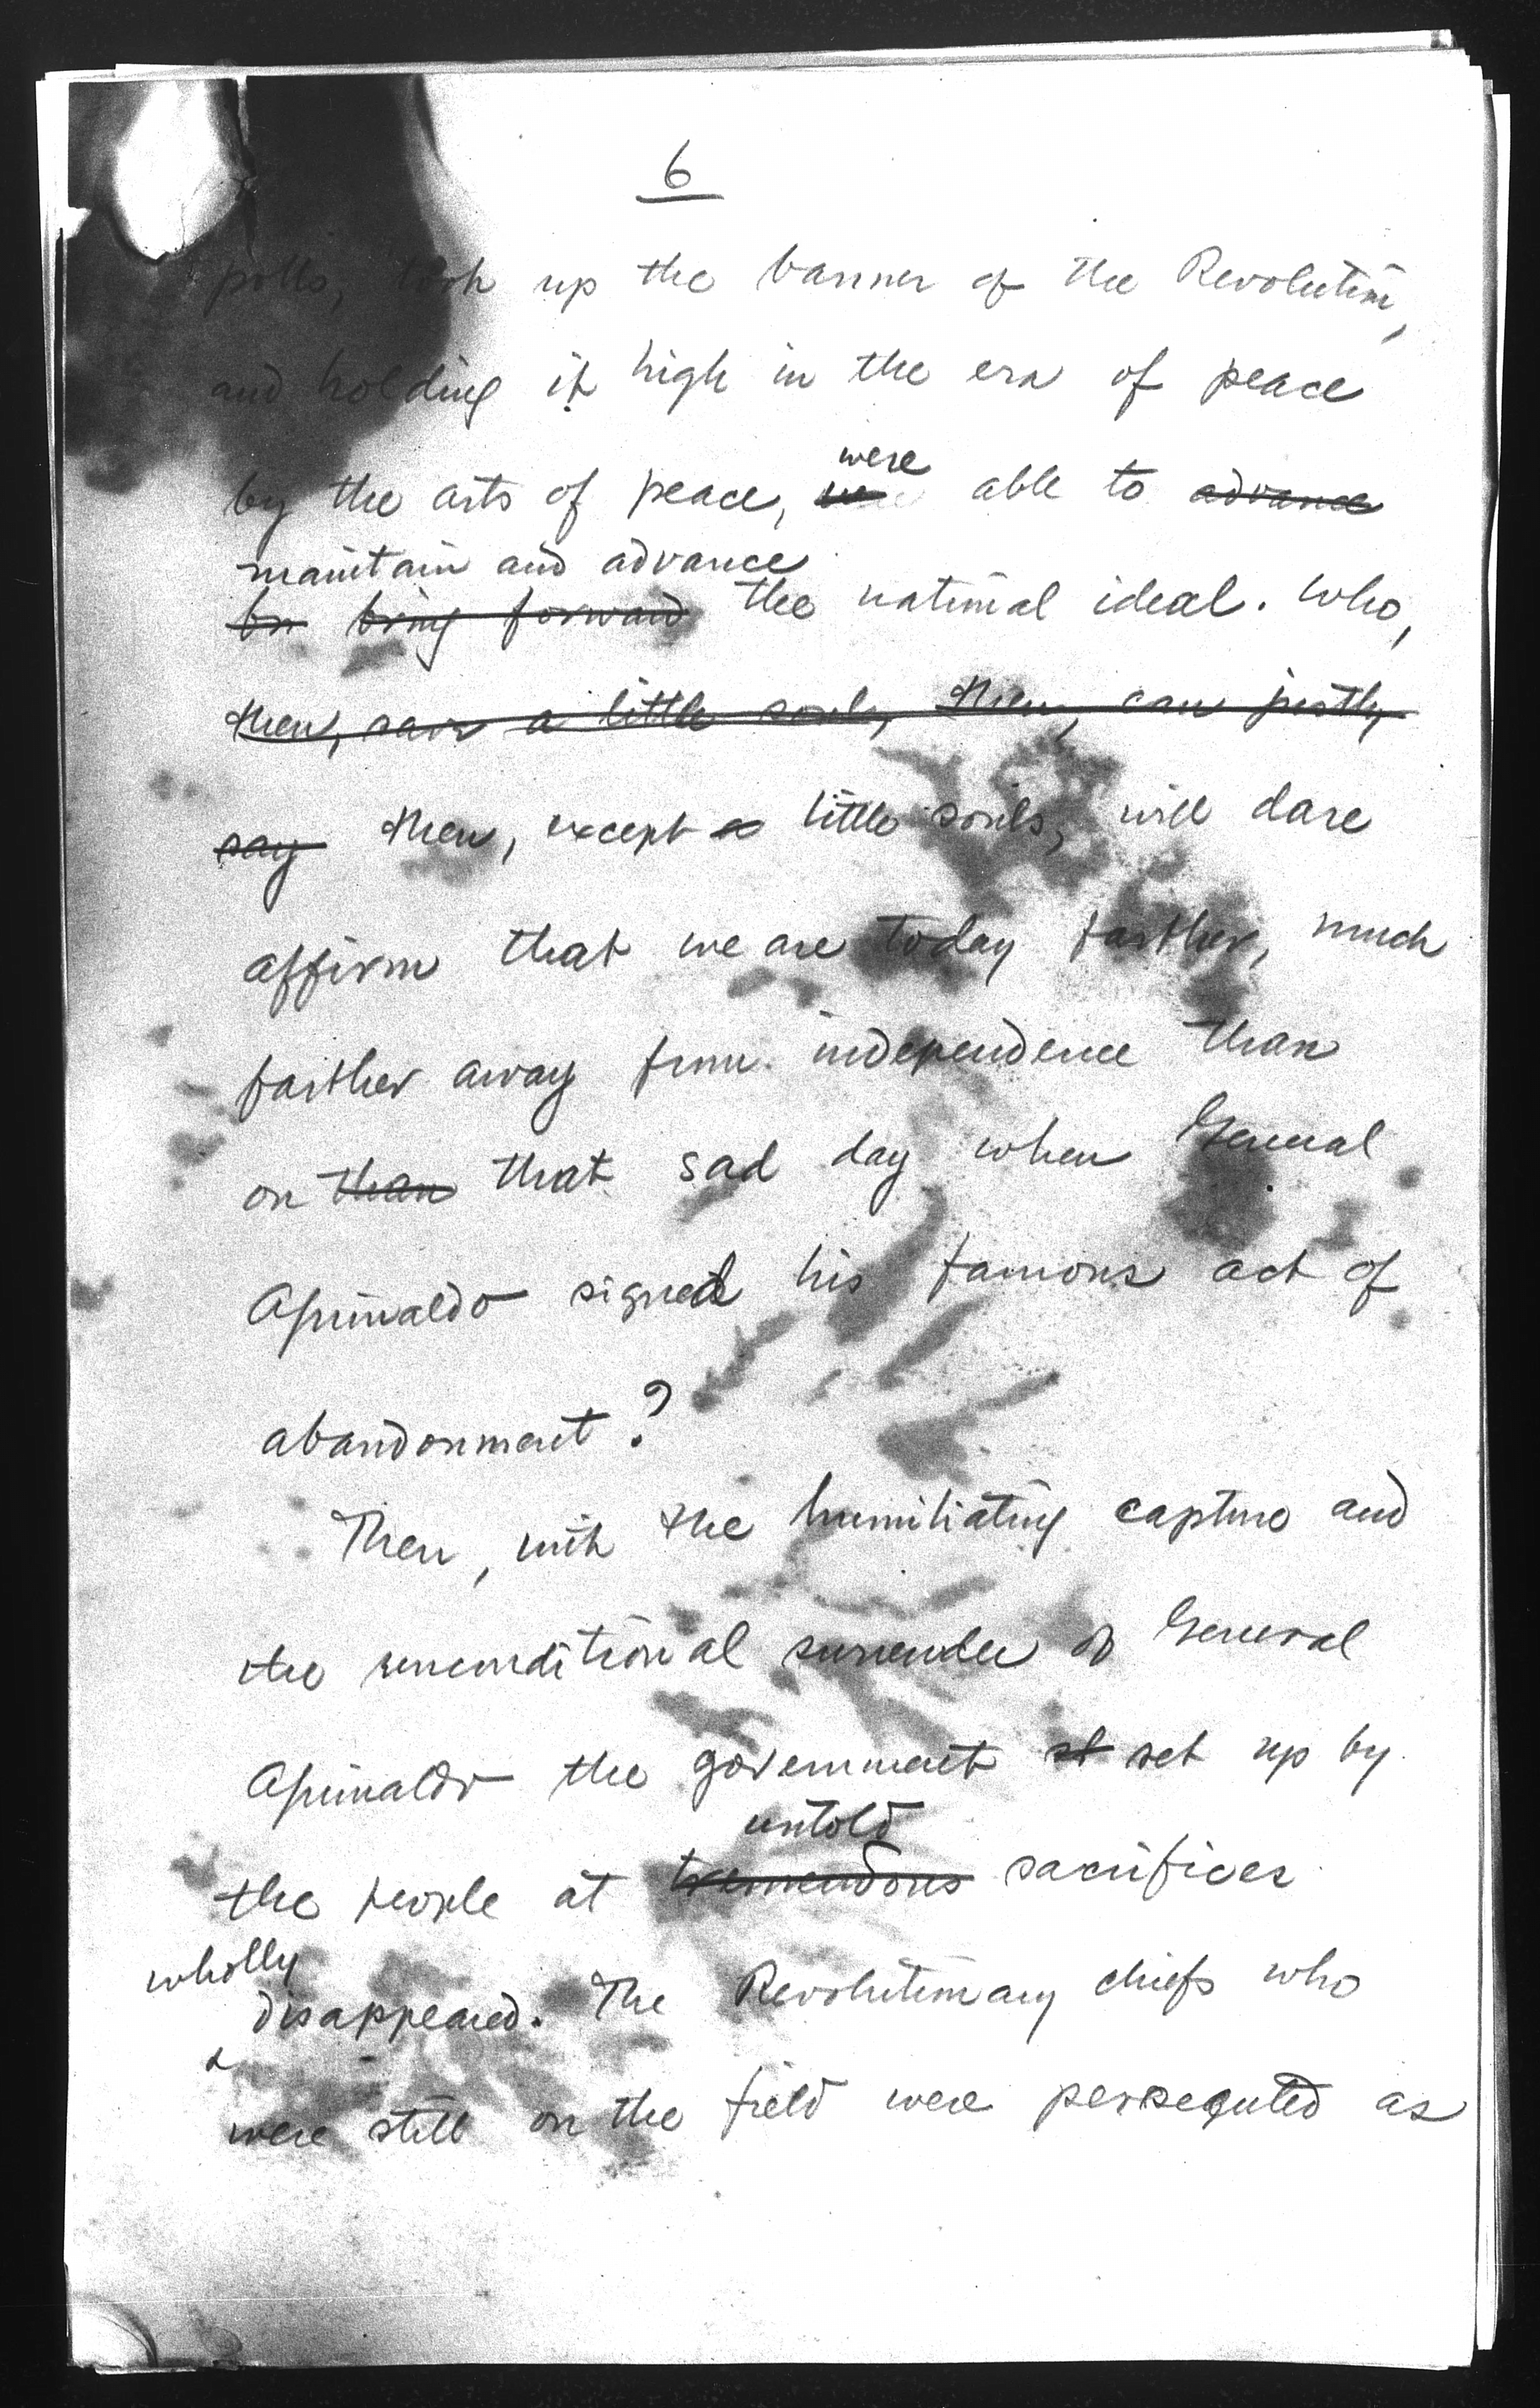 6
polls, took up the banner of the Revolution,
and holding it high in the era of peace
were
by the arts of peace, able to advance
maintain and advance
bring forward the national ideal. Who,
then, a little souls, then, can justly
say then, except little souls, will dare
affirm that we are today farther, much
farther away from independence than
on than that sad day when General
Aguinaldo signed his famous act of
abandonment?
Then, with the humiliating capture and
the unconditional surrender of General
Aguinaldo the government st set up by
untold
the people at tremendous sacrifices
wholly
disappeared. The Revolutionary chiefs who
were still on the field were persequted as